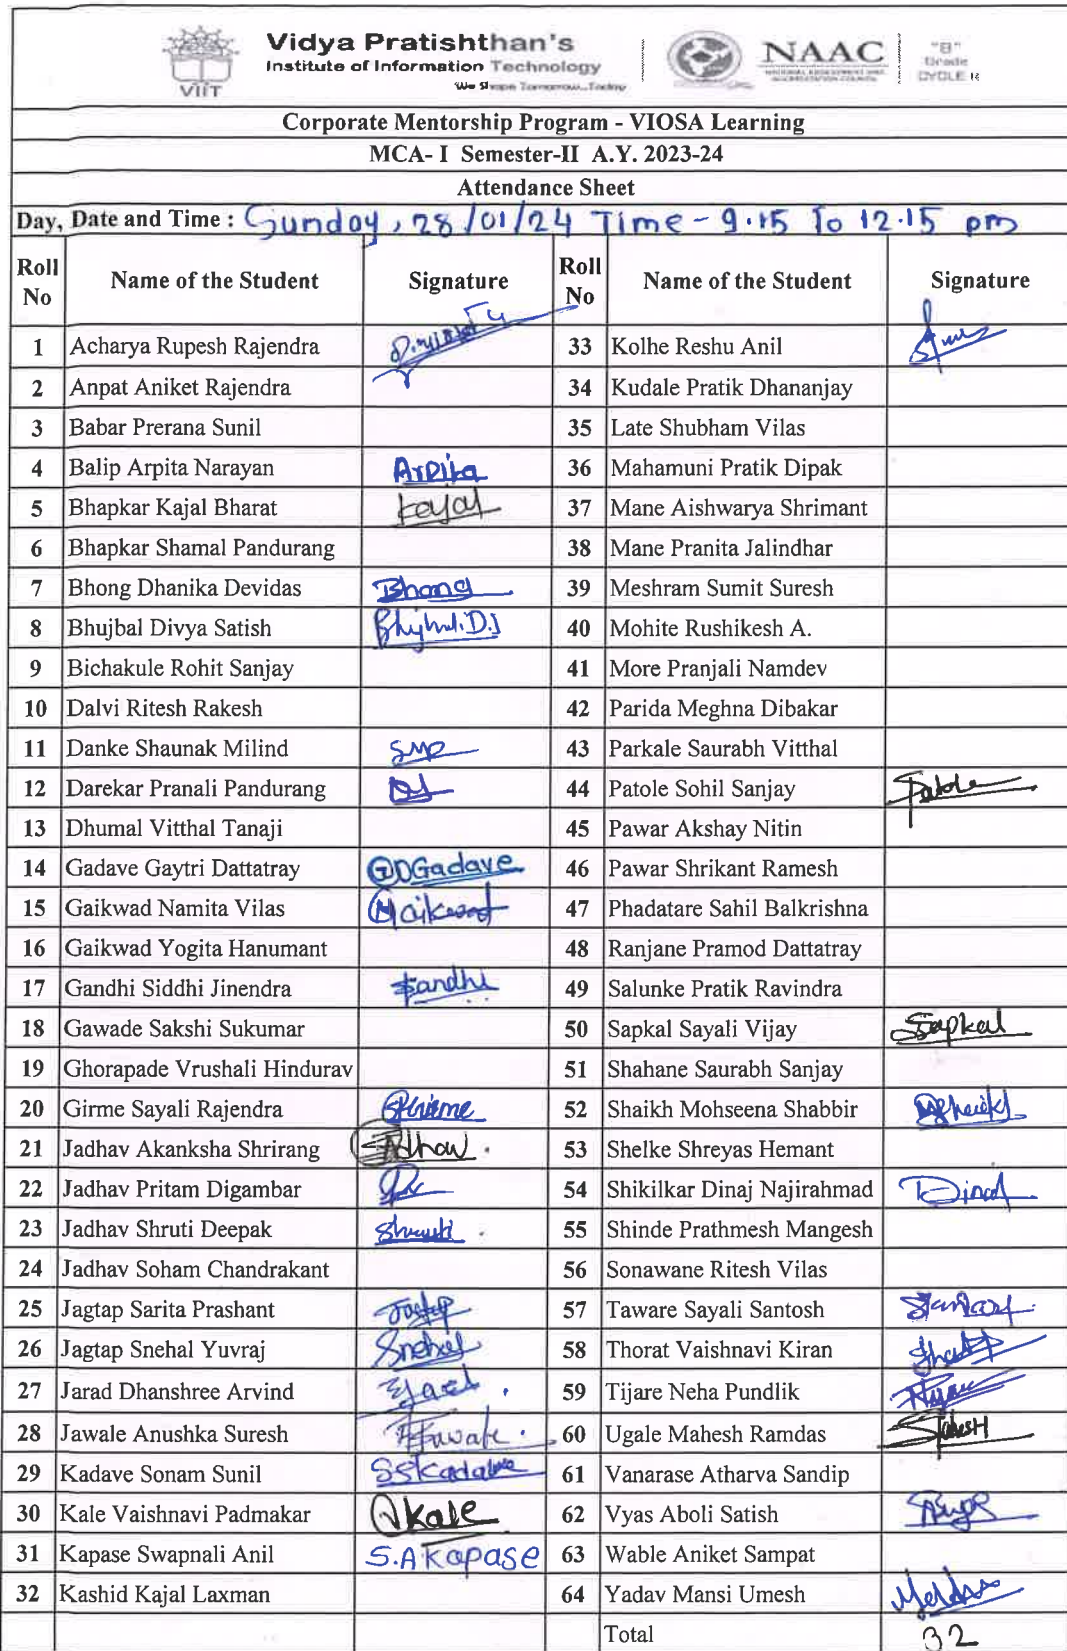 VIIT
Vidya Pratishthan's
Institute of Information Technology
We Shape Tomorrow...Today
NAAC
NATIONAL ASSESSMENT AND
ACCREDITATION COUNCIL
"B"
Grade
CYCLE
Corporate Mentorship Program - VIOSA Learning
MCA- I Semester-II A.Y. 2023-24
Attendance Sheet
Day, Date and Time : Sunday, 28/01/24 Time - 9.15 To 12.15 pm
Roll No Name of the Student Signature Roll No Name of the Student Signature
1 Acharya Rupesh Rajendra 33 Kolhe Reshu Anil
2 Anpat Aniket Rajendra 34 Kudale Pratik Dhananjay
3 Babar Prerana Sunil 35 Late Shubham Vilas
4 Balip Arpita Narayan Arpita 36 Mahamuni Pratik Dipak
5 Bhapkar Kajal Bharat kajal 37 Mane Aishwarya Shrimant
6 Bhapkar Shamal Pandurang 38 Mane Pranita Jalindhar
7 Bhong Dhanika Devidas Bhong 39 Meshram Sumit Suresh
8 Bhujbal Divya Satish 40 Mohite Rushikesh A.
9 Bichakule Rohit Sanjay 41 More Pranjali Namdev
10 Dalvi Ritesh Rakesh 42 Parida Meghna Dibakar
11 Danke Shaunak Milind 43 Parkale Saurabh Vitthal
12 Darekar Pranali Pandurang 44 Patole Sohil Sanjay Patole
13 Dhumal Vitthal Tanaji 45 Pawar Akshay Nitin
14 Gadave Gaytri Dattatray GDGadave 46 Pawar Shrikant Ramesh
15 Gaikwad Namita Vilas 47 Phadatare Sahil Balkrishna
16 Gaikwad Yogita Hanumant 48 Ranjane Pramod Dattatray
17 Gandhi Siddhi Jinendra Gandhi 49 Salunke Pratik Ravindra
18 Gawade Sakshi Sukumar 50 Sapkal Sayali Vijay SSapkal
19 Ghorapade Vrushali Hindurav 51 Shahane Saurabh Sanjay
20 Girme Sayali Rajendra 52 Shaikh Mohseena Shabbir
21 Jadhav Akanksha Shrirang 53 Shelke Shreyas Hemant
22 Jadhav Pritam Digambar 54 Shikilkar Dinaj Najirahmad
23 Jadhav Shruti Deepak 55 Shinde Prathmesh Mangesh
24 Jadhav Soham Chandrakant 56 Sonawane Ritesh Vilas
25 Jagtap Sarita Prashant Jagtap 57 Taware Sayali Santosh
26 Jagtap Snehal Yuvraj Snehal 58 Thorat Vaishnavi Kiran
27 Jarad Dhanshree Arvind 59 Tijare Neha Pundlik
28 Jawale Anushka Suresh 60 Ugale Mahesh Ramdas
29 Kadave Sonam Sunil SSKadave 61 Vanarase Atharva Sandip
30 Kale Vaishnavi Padmakar Vkale 62 Vyas Aboli Satish
31 Kapase Swapnali Anil S.A Kapase 63 Wable Aniket Sampat
32 Kashid Kajal Laxman 64 Yadav Mansi Umesh
Total 32